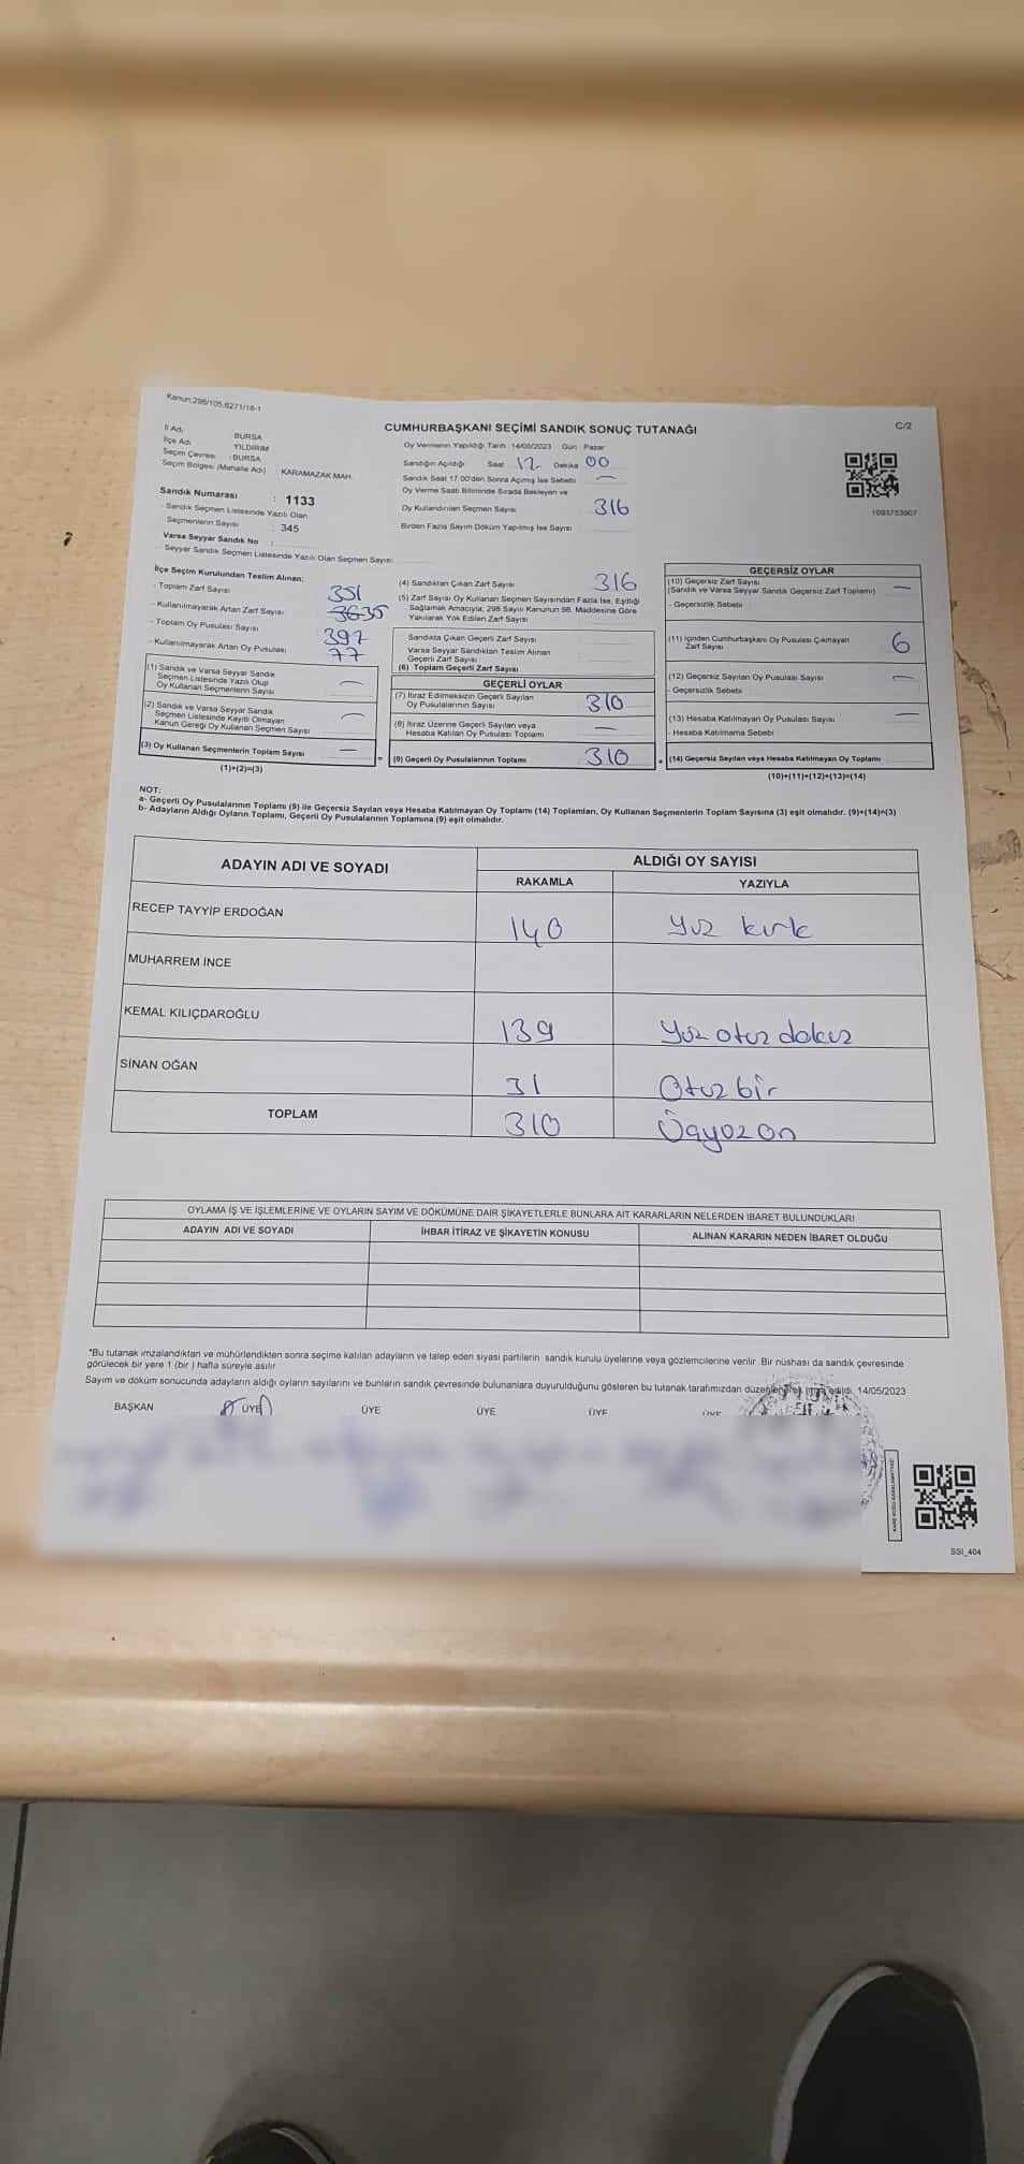 Kanun:298/105,6271/18-1
CUMHURBAŞKANI SEÇİMİ SANDIK SONUÇ TUTANAĞI
C/2
İl Adı : BURSA
İlçe Adı : YILDIRIM
Seçim Çevresi : BURSA
Seçim Bölgesi (Mahalle Adı) : KARAMAZAK MAH.
Sandık Numarası : 1133
Sandık Seçmen Listesinde Yazılı Olan
Seçmenlerin Sayısı : 345
Varsa Seyyar Sandık No :
Seyyar Sandık Seçmen Listesinde Yazılı Olan Seçmen Sayısı
Oy Vermenin Yapıldığı Tarih : 14/05/2023 Gün : Pazar
Sandığın Açıldığı Saat 17 Dakika 00
Sandık Saat 17:00'den Sonra Açılmış İse Sebebi —
Oy Verme Saati Bitiminde Sırada Bekleyen ve
Oy Kullandırılan Seçmen Sayısı 316
Birden Fazla Sayım Döküm Yapılmış İse Sayısı
1091753907
İlçe Seçim Kurulundan Teslim Alınan;
- Toplam Zarf Sayısı 351
- Kullanılmayarak Artan Zarf Sayısı 35
- Toplam Oy Pusulası Sayısı 397
- Kullanılmayarak Artan Oy Pusulası 77
(1) Sandık ve Varsa Seyyar Sandık
Seçmen Listesinde Yazılı Olup
Oy Kullanan Seçmenlerin Sayısı —
(2) Sandık ve Varsa Seyyar Sandık
Seçmen Listesinde Kayıtlı Olmayan
Kanun Gereği Oy Kullanan Seçmen Sayısı —
(3) Oy Kullanan Seçmenlerin Toplam Sayısı —
(1)+(2)=(3)
(4) Sandıktan Çıkan Zarf Sayısı 316
(5) Zarf Sayısı Oy Kullanan Seçmen Sayısından Fazla İse, Eşitliği
Sağlamak Amacıyla, 298 Sayılı Kanunun 98. Maddesine Göre
Yakılarak Yok Edilen Zarf Sayısı
Sandıkta Çıkan Geçerli Zarf Sayısı
Varsa Seyyar Sandıktan Teslim Alınan
Geçerli Zarf Sayısı
(6) Toplam Geçerli Zarf Sayısı
GEÇERLİ OYLAR
(7) İtiraz Edilmeksizin Geçerli Sayılan
Oy Pusulalarının Sayısı 310
(8) İtiraz Üzerine Geçerli Sayılan veya
Hesaba Katılan Oy Pusulası Toplamı —
(9) Geçerli Oy Pusulalarının Toplamı 310
GEÇERSİZ OYLAR
(10) Geçersiz Zarf Sayısı
(Sandık ve Varsa Seyyar Sandık Geçersiz Zarf Toplamı) —
- Geçersizlik Sebebi
(11) İçinden Cumhurbaşkanı Oy Pusulası Çıkmayan
Zarf Sayısı 6
(12) Geçersiz Sayılan Oy Pusulası Sayısı —
- Geçersizlik Sebebi
(13) Hesaba Katılmayan Oy Pusulası Sayısı —
- Hesaba Katılmama Sebebi
(14) Geçersiz Sayılan veya Hesaba Katılmayan Oy Toplamı
(10)+(11)+(12)+(13)=(14)
NOT:
a- Geçerli Oy Pusulalarının Toplamı (9) ile Geçersiz Sayılan veya Hesaba Katılmayan Oy Toplamı (14) Toplamları, Oy Kullanan Seçmenlerin Toplam Sayısına (3) eşit olmalıdır. (9)+(14)=(3)
b- Adayların Aldığı Oyların Toplamı, Geçerli Oy Pusulalarının Toplamına (9) eşit olmalıdır.
ADAYIN ADI VE SOYADI
ALDIĞI OY SAYISI
RAKAMLA YAZIYLA
RECEP TAYYİP ERDOĞAN 140 Yüz kırk
MUHARREM İNCE
KEMAL KILIÇDAROĞLU 139 Yüz otuz dokuz
SİNAN OĞAN 31 Otuz bir
TOPLAM 310 Üçyüz on
OYLAMA İŞ VE İŞLEMLERİNE VE OYLARIN SAYIM VE DÖKÜMÜNE DAİR ŞİKAYETLERLE BUNLARA AİT KARARLARIN NELERDEN İBARET BULUNDUKLARI
ADAYIN ADI VE SOYADI İHBAR İTİRAZ VE ŞİKAYETİN KONUSU ALINAN KARARIN NEDEN İBARET OLDUĞU
*Bu tutanak imzalandıktan ve mühürlendikten sonra seçime katılan adayların ve talep eden siyasi partilerin sandık kurulu üyelerine veya gözlemcilerine verilir. Bir nüshası da sandık çevresinde
görülecek bir yere 1 (bir) hafta süreyle asılır.
Sayım ve döküm sonucunda adayların aldığı oyların sayılarını ve bunların sandık çevresinde bulunanlara duyurulduğunu gösteren bu tutanak tarafımızdan 14/05/2023
BAŞKAN ÜYE ÜYE ÜYE ÜYE ÜYE
SSI_404